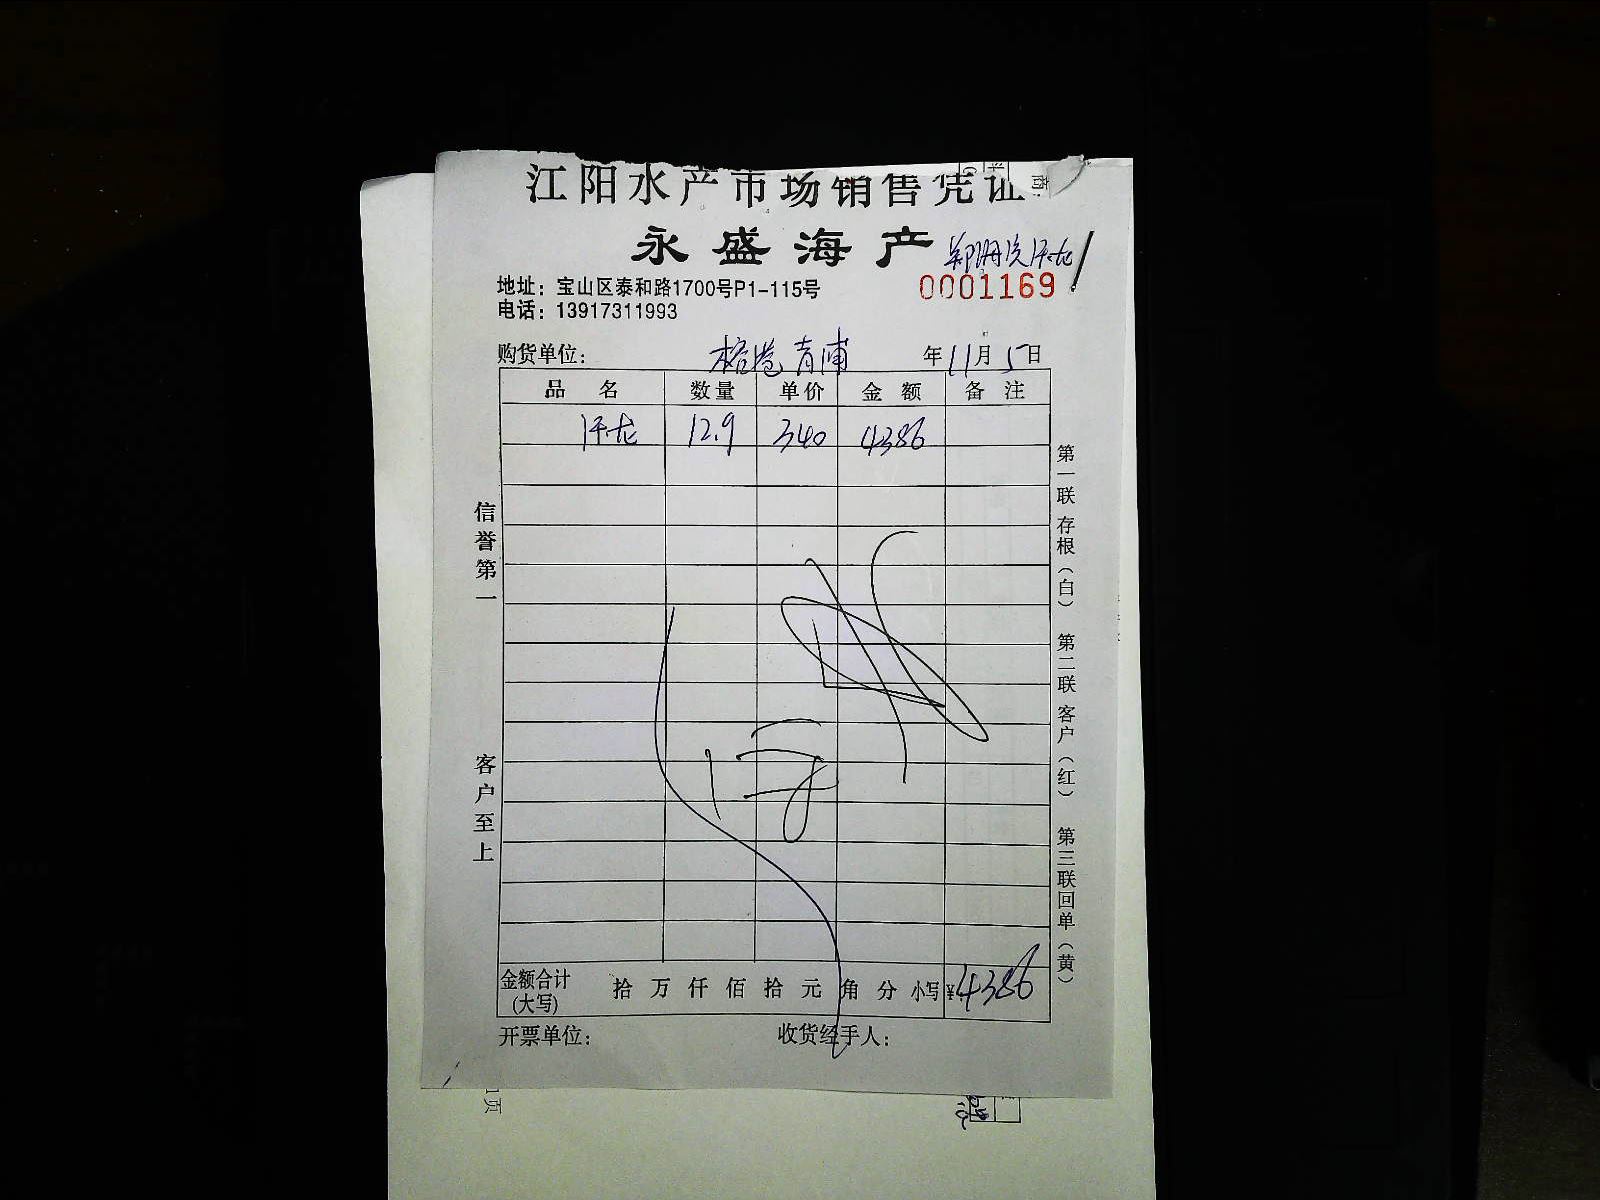 江阳水产市场销售凭证
永盛海产
0001169
地址：宝山区泰和路1700号P1-115号
电话：13917311993
购货单位： 榕港青浦 年11月5日
品名 数量 单价 金额 备注
12.9 340 4386
信誉第一
客户至上
第一联存根（白） 第二联客户（红） 第三联回单（黄）
金额合计（大写） 拾 万 仟 佰 拾 元 角 分 小写¥4386
开票单位： 收货经手人：